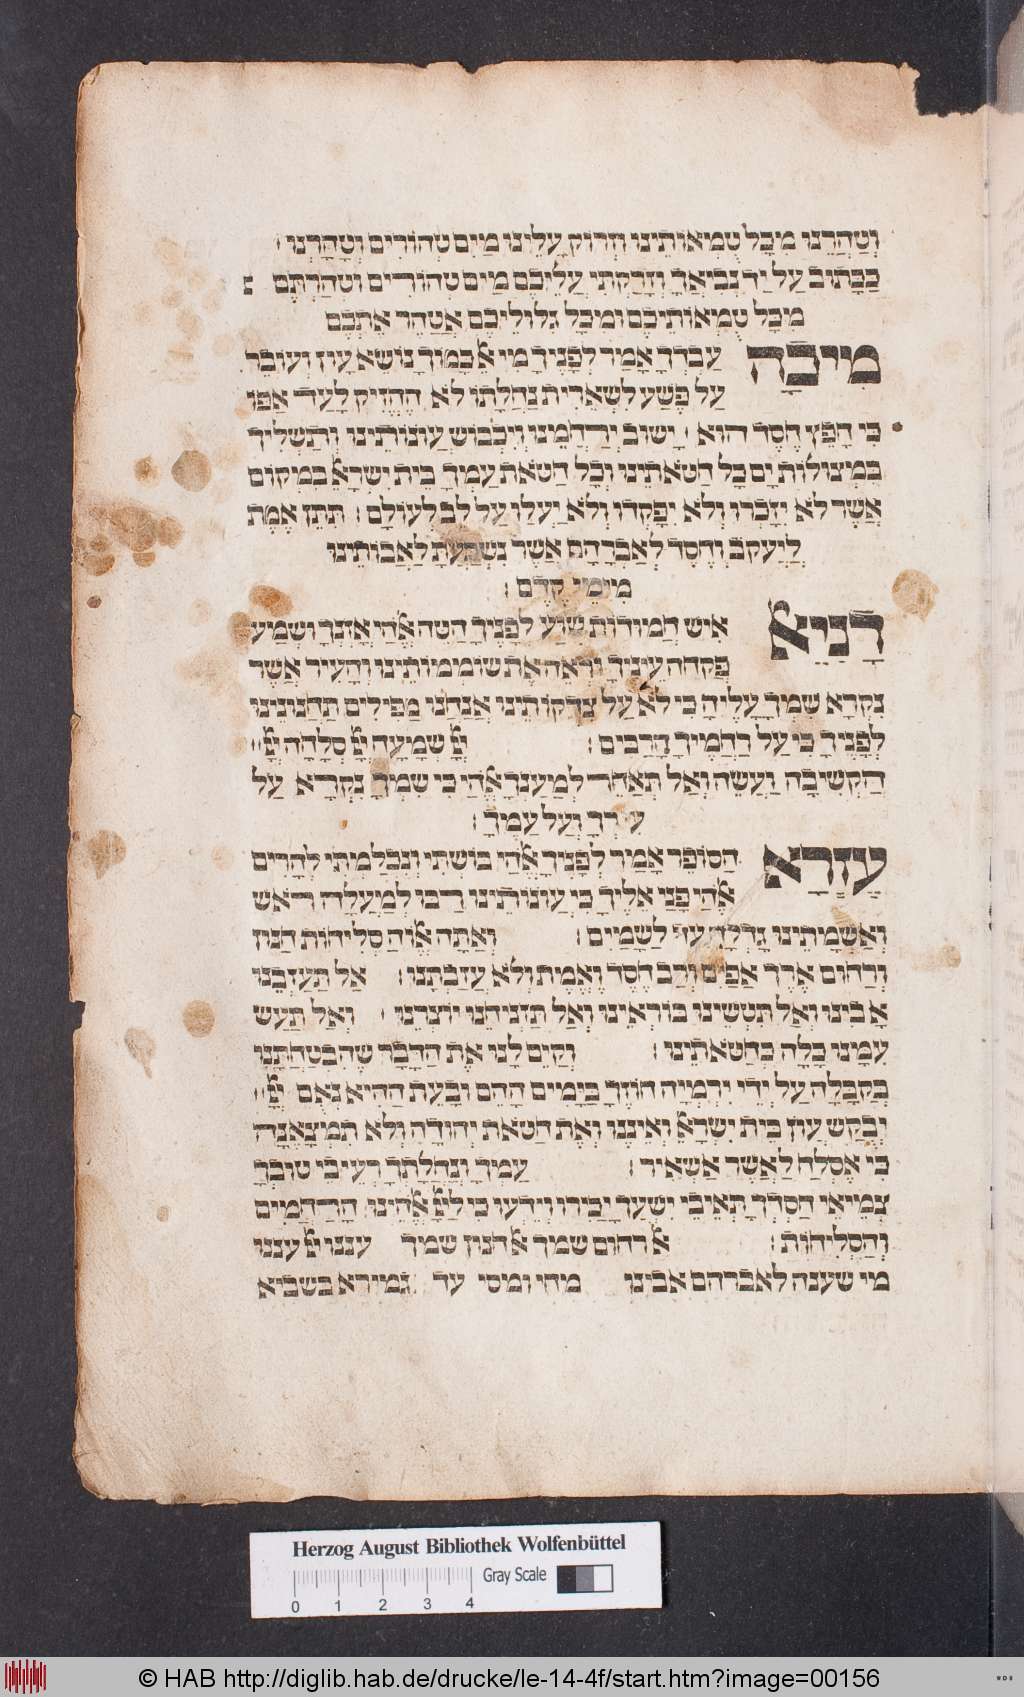 וְטַהֲרֵנוּ מִכָּל טֻמְאוֹתֵינוּ וּזְרוֹק עָלֵינוּ מַיִם טְהוֹרִים וְטַהֲרֵנוּ׃
כַּכָּתוּב עַל יַד נְבִיאָךְ וְזָרַקְתִּי עֲלֵיכֶם מַיִם טְהוֹרִים וּטְהַרְתֶּם
מִכָּל טֻמְאוֹתֵיכֶם וּמִכָּל גִּלּוּלֵיכֶם אֲטַהֵר אֶתְכֶם
מִיכָה עַבְדְּךָ אָמַר לְפָנֶיךָ מִי אֵל כָּמוֹךָ נוֹשֵׂא עָוֹן וְעוֹבֵר
עַל פֶּשַׁע לִשְׁאֵרִית נַחֲלָתוֹ לֹא הֶחֱזִיק לָעַד אַפּוֹ
כִּי חָפֵץ חֶסֶד הוּא׃ יָשׁוּב יְרַחֲמֵנוּ וְיִכְבּוֹשׁ עֲוֹנוֹתֵינוּ וְתַשְׁלִיךְ
בִּמְצוּלוֹת יָם כָּל חַטֹּאתֵינוּ וְכָל חַטֹּאת עַמְּךָ בֵּית יִשְׂרָאֵל בִּמְקוֹם
אֲשֶׁר לֹא יִזָּכְרוּ וְלֹא יִפָּקְדוּ וְלֹא יַעֲלוּ עַל לֵב לְעוֹלָם׃ תִּתֵּן אֱמֶת
לְיַעֲקֹב וְחֶסֶד לְאַבְרָהָם אֲשֶׁר נִשְׁבַּעְתָּ לַאֲבוֹתֵינוּ
מִימֵי קֶדֶם׃
דָּנִיאֵל אִישׁ חֲמוּדוֹת שִׁוַּע לְפָנֶיךָ הַטֵּה אֱלֹהַי אָזְנְךָ וּשְׁמָע
פְּקַחָה עֵינֶיךָ וּרְאֵה אֶת שׁוֹמְמוֹתֵינוּ וְהָעִיר אֲשֶׁר
נִקְרָא שִׁמְךָ עָלֶיהָ כִּי לֹא עַל צִדְקוֹתֵינוּ אֲנַחְנוּ מַפִּילִים תַּחֲנוּנֵינוּ
לְפָנֶיךָ כִּי עַל רַחֲמֶיךָ הָרַבִּים׃ יְיָ שְׁמָעָה יְיָ סְלָחָה יְיָ
הַקְשִׁיבָה וַעֲשֵׂה וְאַל תְּאַחַר לְמַעַנְךָ אֱלֹהַי כִּי שִׁמְךָ נִקְרָא עַל
עִירְךָ וְעַל עַמֶּךָ׃
עֶזְרָא הַסּוֹפֵר אָמַר לְפָנֶיךָ אֱלֹהַי בּוֹשְׁתִּי וְנִכְלַמְתִּי לְהָרִים
אֱלֹהַי פָּנַי אֵלֶיךָ כִּי עֲוֹנוֹתֵינוּ רַבּוּ לְמַעְלָה רֹאשׁ
וְאַשְׁמָתֵינוּ גָדְלָה עַד לַשָּׁמַיִם׃ וְאַתָּה אֱלוֹהַּ סְלִיחוֹת חַנּוּן
וְרַחוּם אֶרֶךְ אַפַּיִם וְרַב חֶסֶד וֶאֱמֶת וְלֹא עֲזַבְתָּנוּ׃ אַל תַּעַזְבֵנוּ
אָבִינוּ וְאַל תִּטְּשֵׁינוּ בּוֹרְאֵינוּ וְאַל תַּזְנִיחֵנוּ יוֹצְרֵנוּ׃ וְאַל תַּעַשׂ
עִמָּנוּ כָּלָה כְּחַטֹּאתֵינוּ׃ וְקַיֶּם לָנוּ אֶת הַדָּבָר שֶׁהִבְטַחְתָּנוּ
בְּקַבָּלָה עַל יְדֵי יִרְמְיָה חוֹזָךְ בַּיָּמִים הָהֵם וּבָעֵת הַהִיא נְאֻם יְיָ
יְבֻקַּשׁ עֲוֹן בֵּית יִשְׂרָאֵל וְאֵינֶנּוּ וְאֶת חַטֹּאת יְהוּדָה וְלֹא תִמָּצֶאנָה
כִּי אֶסְלַח לַאֲשֶׁר אַשְׁאִיר׃ עַמְּךָ וְנַחֲלָתְךָ רְעֵיבֵי טוּבְךָ
צְמֵיאֵי חַסְדְּךָ תְּאֵיבֵי יִשְׁעֲךָ יַכִּירוּ וְיֵדְעוּ כִּי לַייָ אֱלֹהֵינוּ הָרַחֲמִים
וְהַסְּלִיחוֹת׃ אל רחום שמך אל חנון שמך עננו יי עננו
מי שענה לאברהם אבינו מחי ומסי עד גמירא בשביא
Herzog August Bibliothek Wolfenbüttel
Gray Scale
0 1 2 3 4
© HAB http://diglib.hab.de/drucke/le-14-4f/start.htm?image=00156